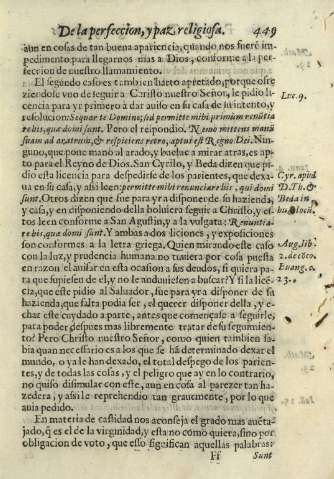 De la perfeccion, y paz religiosa. 449
aun en cosas de tan buena apariencia, quando nos fuere im-
pedimento para llegarnos mas a Dios, conforme a la per-
feccion de nuestro llamamiento.
El segundo caso es tambien harto apretado, porque ofre
ziendole vno de seguir a Christo nuestro Señor, le pidio li-
cencia para yr primero à dar auiso en su casa de su intento, y
resolucion: Sequar te Domine, sed permitte mihi primum renūtia
re his, quæ domi sunt. Pero el respondio. Nemo mittens manū
suam ad aratrum, & respiciens retro, aptus est Regno Dei. Nin-
guno, que pone mano al arado, y buelue a mirar atras, es ap-
to para el Reyno de Dios. San Cyrilo, y Beda dizen que pi-
dio esta licencia para despedirse de los parientes, que dexa-
ua en su casa, y assi leen: permitte mihi renunciare his, qui domi
sunt. Otros dizen que fue para yr a disponer de su hazienda,
y casa, y en disponiendola boluiera seguir a Christo, y es-
tos leen conforme a San Agustin, y a la vulgata: Renuntia-
re his, quæ domi sunt. Y ambas a dos liciones, y exposiciones
son conformes a la letra griega. Quien mirando este caso
con la luz, y prudencia humana no tuuiera por cosa puesta
en razon el auisar en esta ocasion a sus deudos, si quiera pa-
ra que supiesen de el, y no le anduuiesen a buscar? Y si la lice-
cia, que este pidio al Saluador, fue para yr a disponer de su
hazienda, que falta podia ser, el querer disponer della, y e-
char este cuydado a parte, antes que començase a seguirle,
para poder despues mas libremente tratar de su seguimien-
to? Pero Christo nuestro Señor, como quien tambien sa-
bia quan necessario es a los que se hā determinado dexar el
mundo, o ya le han dexado, el total despego de los parien-
tes, y de todas las cosas, y el peligro que ay en lo contrario,
no quiso disimular con este, aun en cosa al parezer tan ha-
zedera, y assi le reprehendio tan grauemente, por lo que
auia pedido.
En materia de castidad nos aconseja el grado mas auēta-
jado, q̄ es el de la virginidad, y esta no como quiera, sino por
obligacion de voto, que esso significan aquellas palabras:
Ff Sunt
Luc. 9.
Cyr. apud
D. Th. &
Beda in
hunc loci.
Aug. lib.
2. de cōc.
Euang. c.
23.